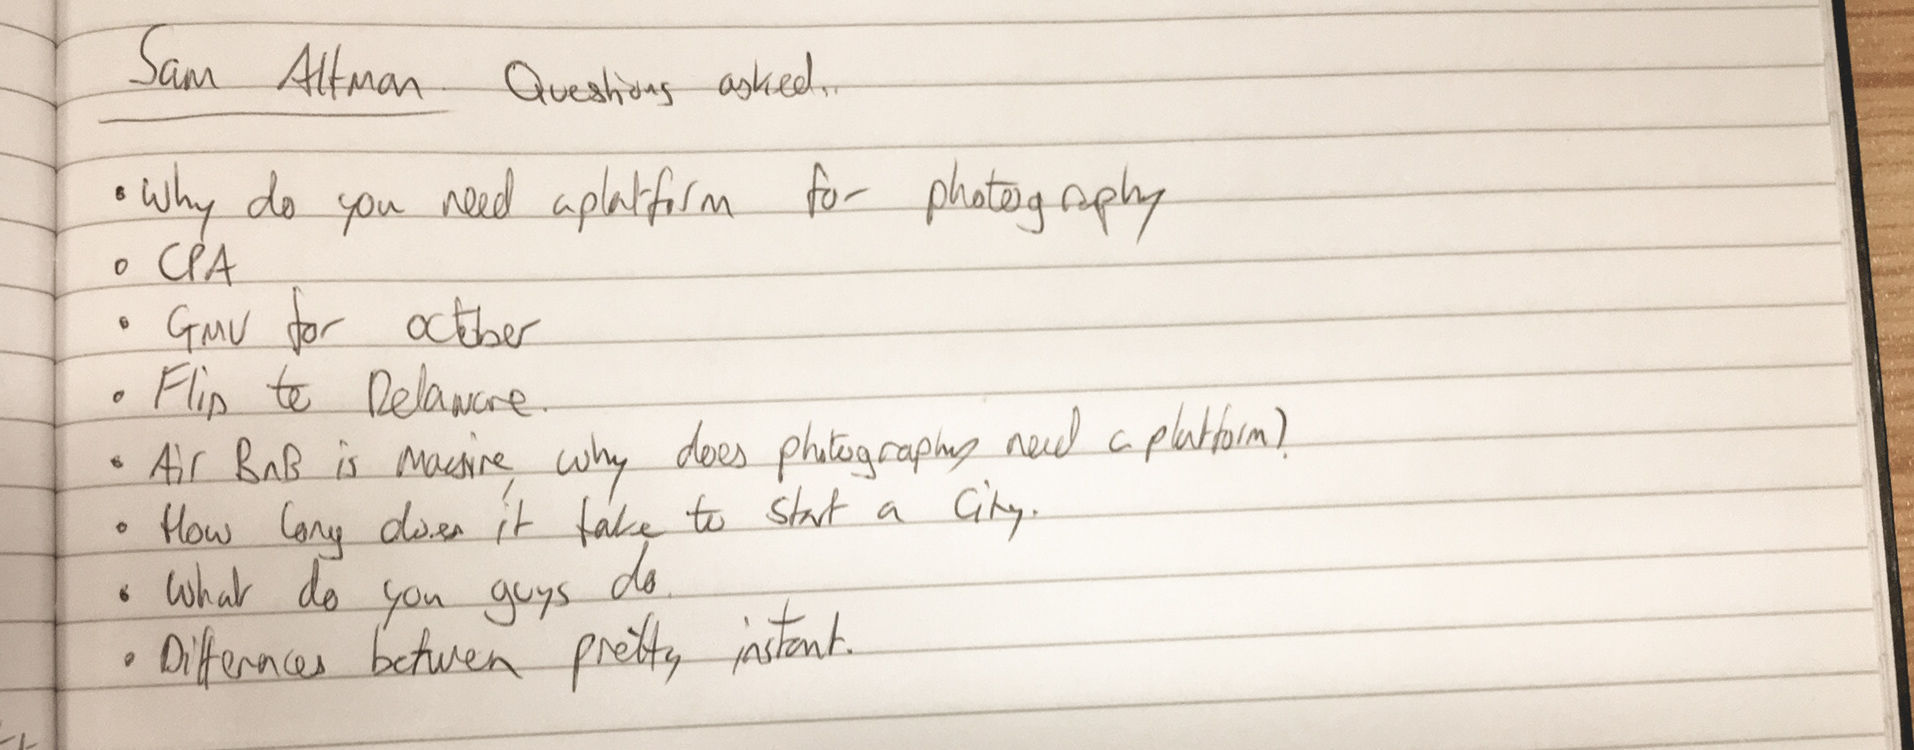 Sam Altman. Questions asked..
• Why do you need a platform for photography
• CPA
• GMV for october
• Flip to Delaware.
• Air BnB is machine, why does photography need a platform?
• How long does it take to start a City.
• What do you guys do.
• Differnces between pretty instant.